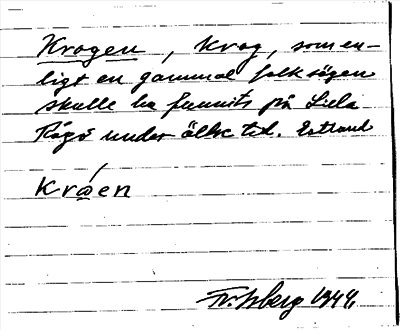 Krogen, krog, som en-
ligt en gammal folksägen
skulle ha funnits på Lilla
Rågö under äldre tid. Estland
Krøen
1944